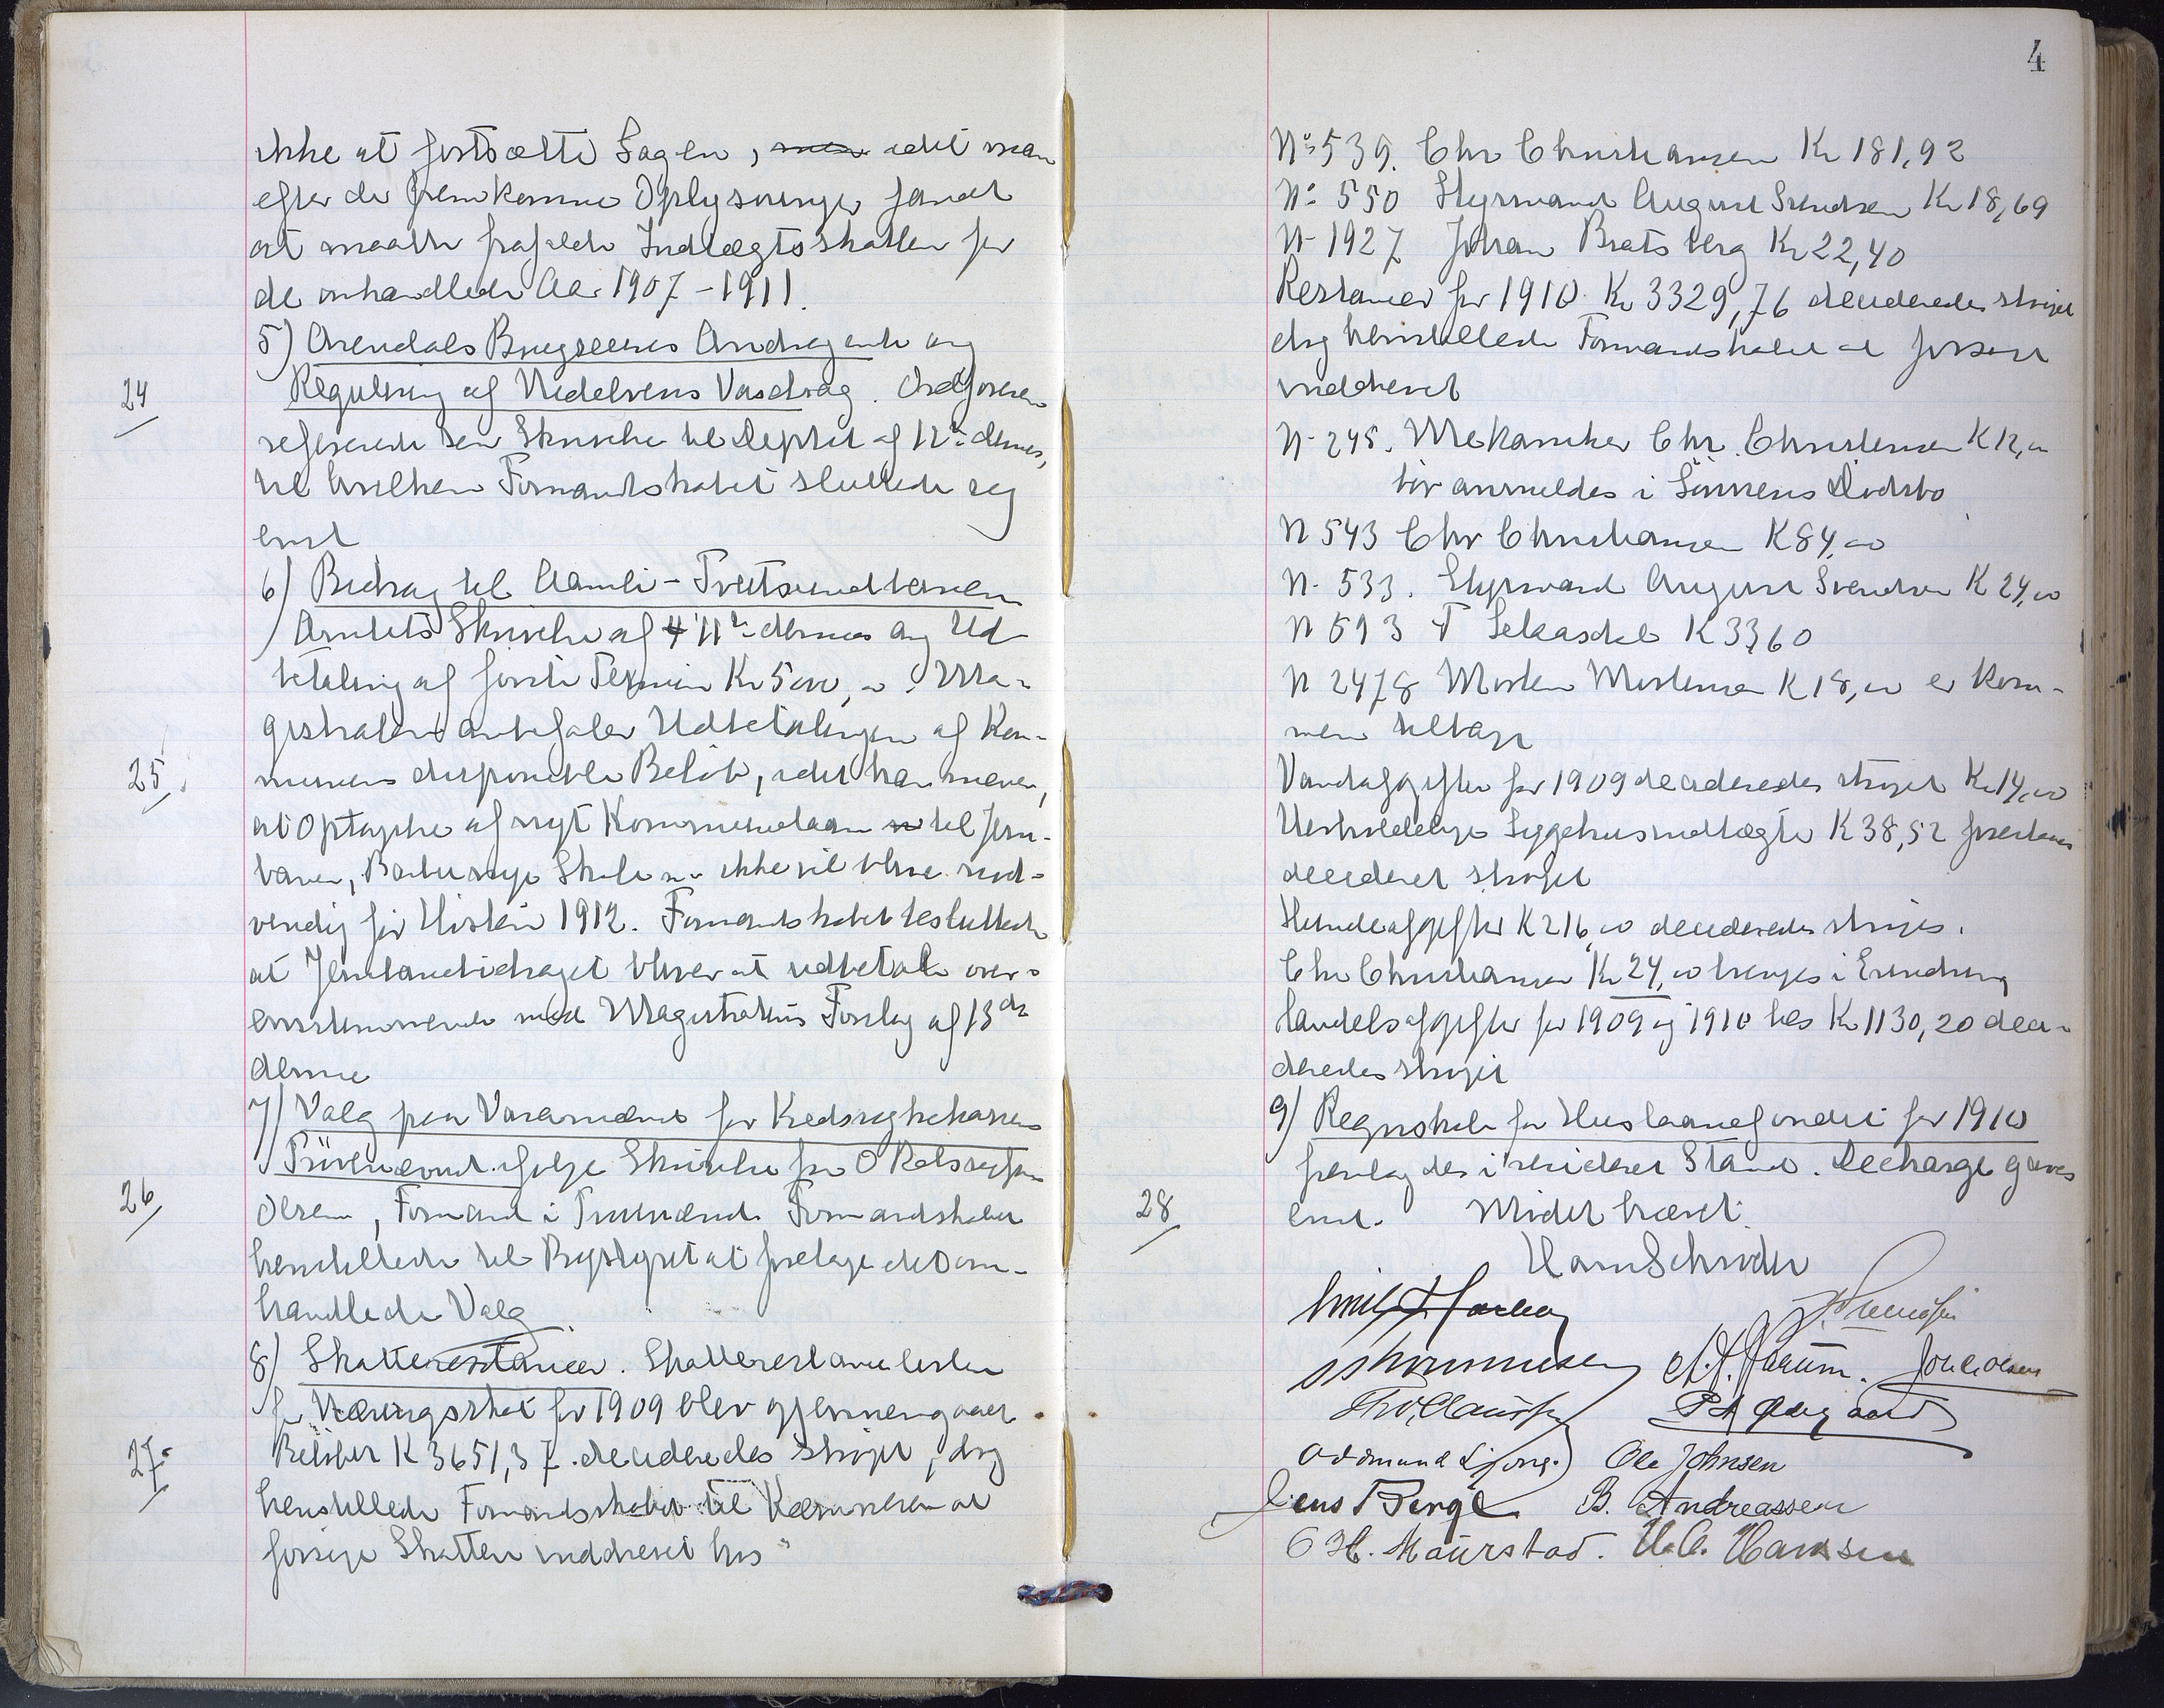 ikke at fortsætte Sagen, men idet man
efter de fremkomne Oplysninger fandt
at maatte frafalde Indtægtsskatten for
de omhandlede Aar 1907-1911.
5) Arendals Brugseeres Andragende ang
24
Regulering af Nidelvens Vasdrag. Ordføreren
refererede sen Skrivelse til Deptet af 12te dennes,
til hvilken Formandskabet sluttede sig
enst
6) Bidrag til Aamli-Tveitsundbanen
Amtets Skrivelse af 4 11te dennes ang Ud-
betaling af første Termin Kr 5000,00. Ma-
gistraten anbefaler Udbetalingen af Kom-
25
munens disponible Beløb, idet han mener,
at Optagelse af nyt Kommunelaan til Jern-
banen, Barbu nye Skole m.v. ikke vil blive nød-
vendig før Høsten 1912. Formandskabet besluttede
at Jernbanebidraget bliver at udbetale over-
ensstemmende med Magistratens Forslag af 13de
dennes
7) Valg paa Varamænd for Kredssygekassens
Prøvenævnd ifølge Skrivelse fra O Kolssegsen
26
Olsen, Formand i Prøvenævnd. Formandskabet
henstillede til Bystyret at foretage det om-
handlede Valg
8) Skatterestancer. Skatterestancelisten
for Næringsskat for 1909 blev gjennemgaaet
27
Beløbet K 3651,37 decideredes strøget, dog
henstillede Formandskabet til Kæmneren at
forsøge Skatten inddrevet hos
4
No 539. Chr Christiansen Kr 181,92
No 550 Styrmand August Svendsen Kr 18,69
N 1927 Johan Bratsberg Kr 22,40
Restancer for 1910 Kr 3329,76 decideredes strøget
dog henstillede Formandskabet at forsøge
inddrevet
N 245. Mekaniker Chr. Christensen K 12,00
bør anmeldes i Sønnens Dødsbo
N 543 Chr Christiansen K 84,00
N. 533. Styrmand August Svendsen K 24,00
N 593 T Selaasdal K 33,60
N 2478 Morten Mortensen K 18,00 er kom-
men tilbage
Vandafgifter for 1909 decideredes strøget Kr 14,00
Uerholdelige Sygehusindtægter K 38,52
decideret strøget
Hundeafgifter K 216,00 decideredes strøget.
Chr Christiansen Kr 24,00 bringes i Erindring
Handelsafgifter for 1909 og 1910 tils Kr 1130,20 deci-
deredes strøget
9) Regnskab for Huslaanefondet for 1910
fremlagdes i revideret Stand. Decharge gaves
28
enst. Mødet hævet.
Ole Johnsen
Jens Berge B. Andreassen
O H. Maurstad. H.C. Hanssen